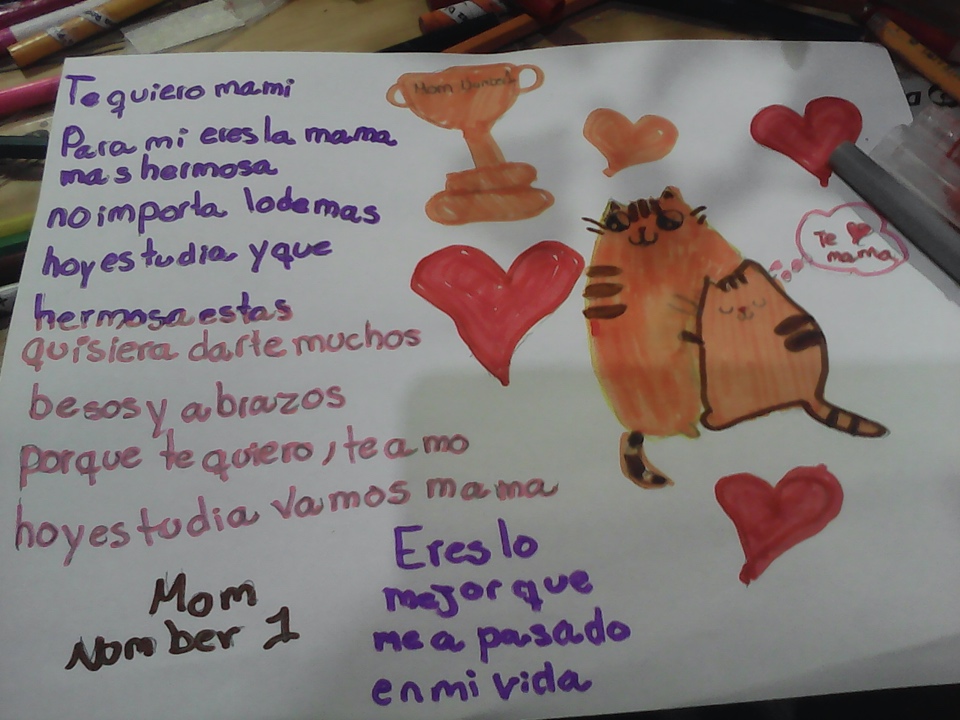 Te quiero mami
Para mi eres la mama
mas hermosa
no importa lodemas
hoy es tu dia y que
hermosa estas
quisiera darte muchos
besos y abrazos
porque te quiero, te amo
hoy es tu dia vamos mama
Mom
Nomber 1
Eres lo
mejor que
me a pasado
en mi vida
Mom
Te
mama